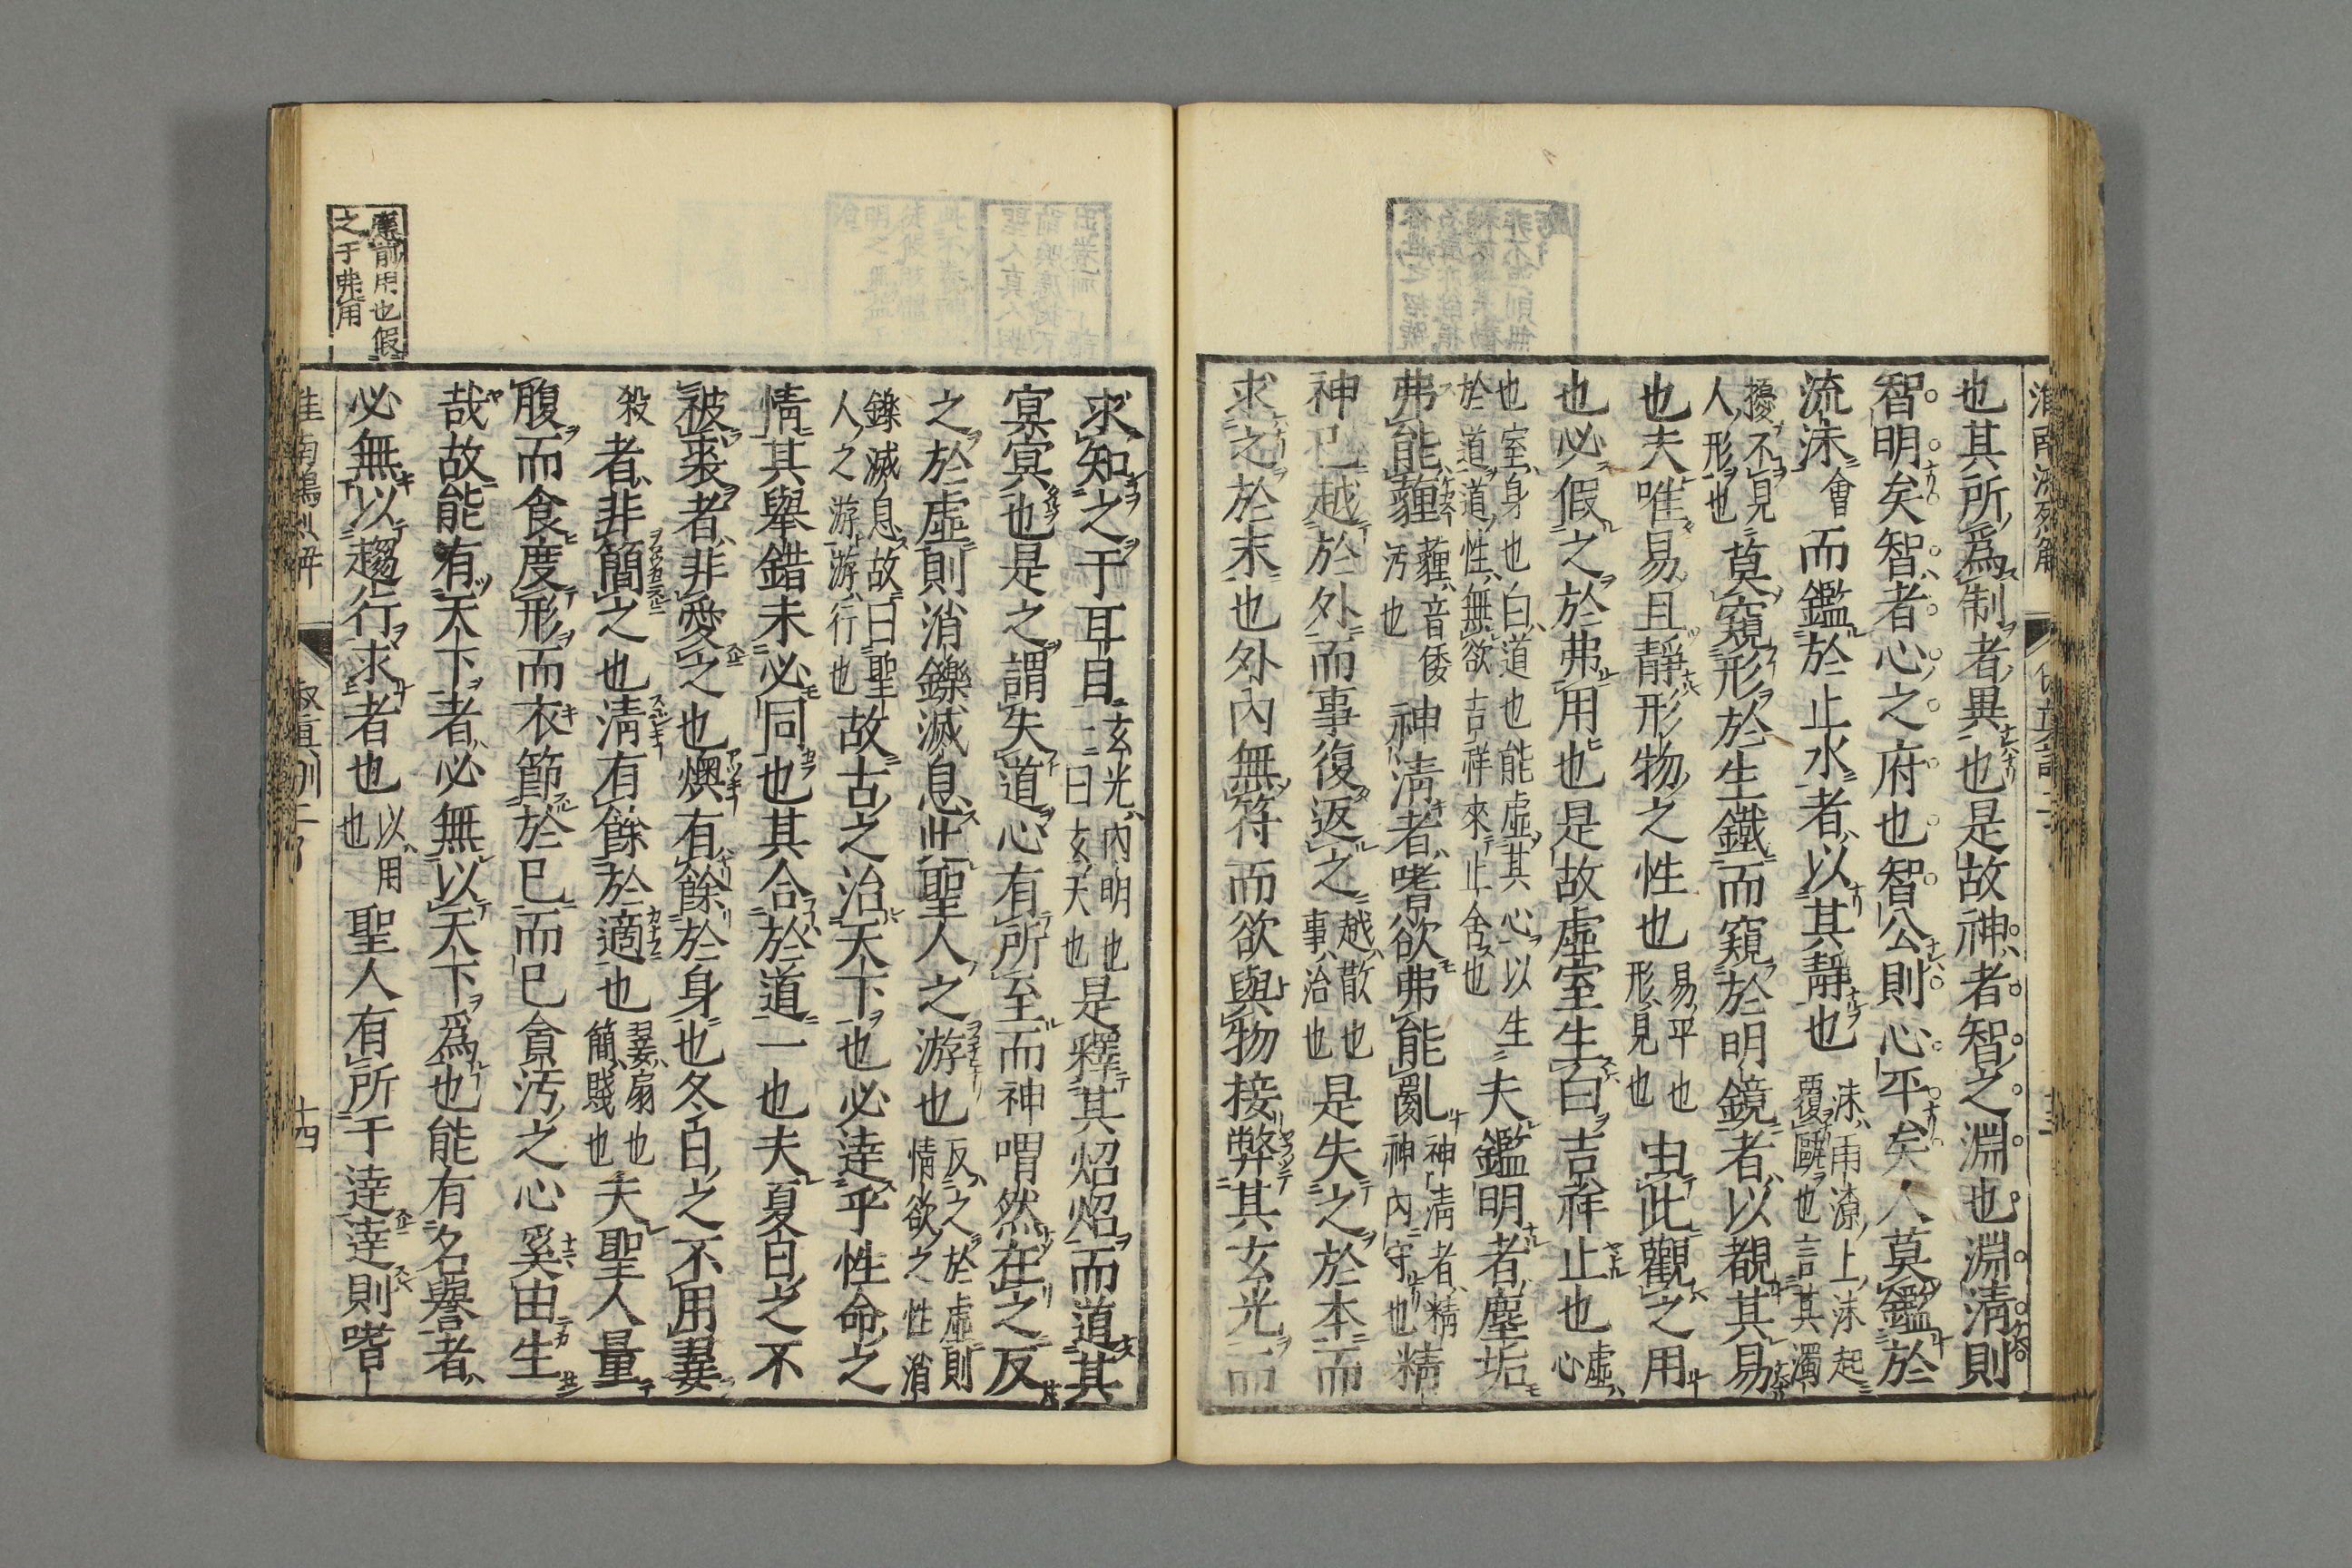 也其所爲制者異也是故神者智之淵也淵淸則
智明矣智者心之府也智公則心平矣人莫鑑於
流沫會而鑑於止水者以其靜也沫雨潦上沫起覆甌也言其濁
擾不見人形也莫窺形於生鐵而窺於明鏡者以覩其易
也夫唯易且靜形物之性也易平也形見也虫此觀之用
也必假之於弗用也是故虛室生白吉祥止也虛心
也室身也白道也能虛其心以生於道道性無欲吉祥來止舍也夫鑑明者塵垢
弗能薶薶音倭汚也神淸者嗜欲弗能亂神淸者精神內守也精
神已越於外而事復返之越散也事治也是失之於本而
求之於末也外內無符而欲與物接弊其玄光而
求知之于耳目玄光內明也一曰玄天也是釋其炤炤而道其
冥冥也是之謂失道心有所至而神喟然在之反
之於虛則消鑠滅息此聖人之游也反之於虛則情欲之性消
鑠滅息故曰聖人之游游行也故古之治天下也必達乎性命之
情其舉錯未必同也其合於道一也夫夏日之不
被裘者非愛之也燠有餘於身也冬日之不用翣
者非簡之也淸有餘於適也翣扇也簡賤也夫聖人量
腹而食度形而衣節於已而已貪汚之心奚由生
哉故能有天下者必無以天下爲也能有名譽者
必無以趨行求者也以用也聖人有所于達達則嗜
應前用也假
之于弗用
十四